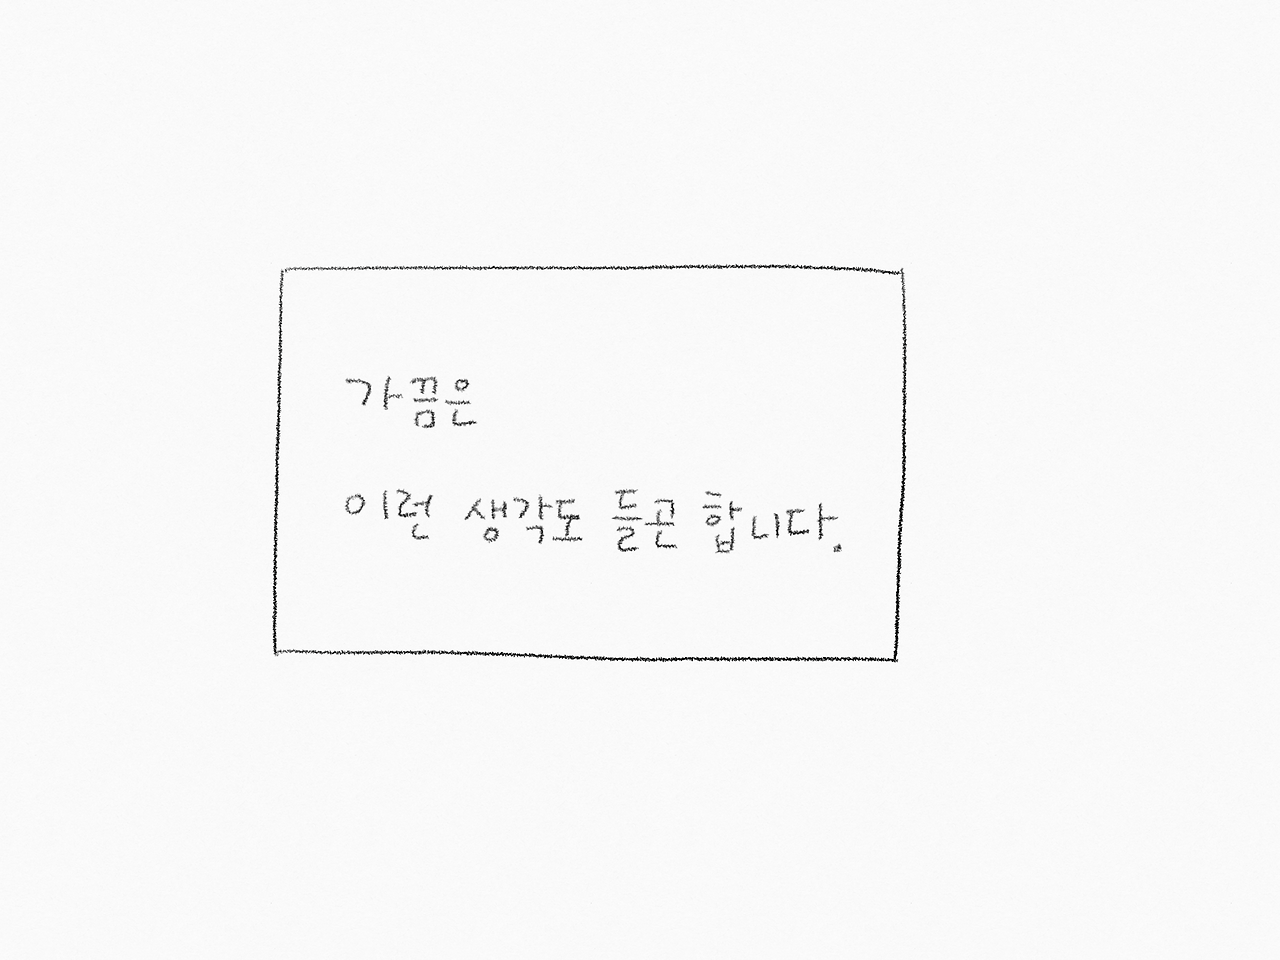 가끔은
이런 생각도 들곤 합니다.